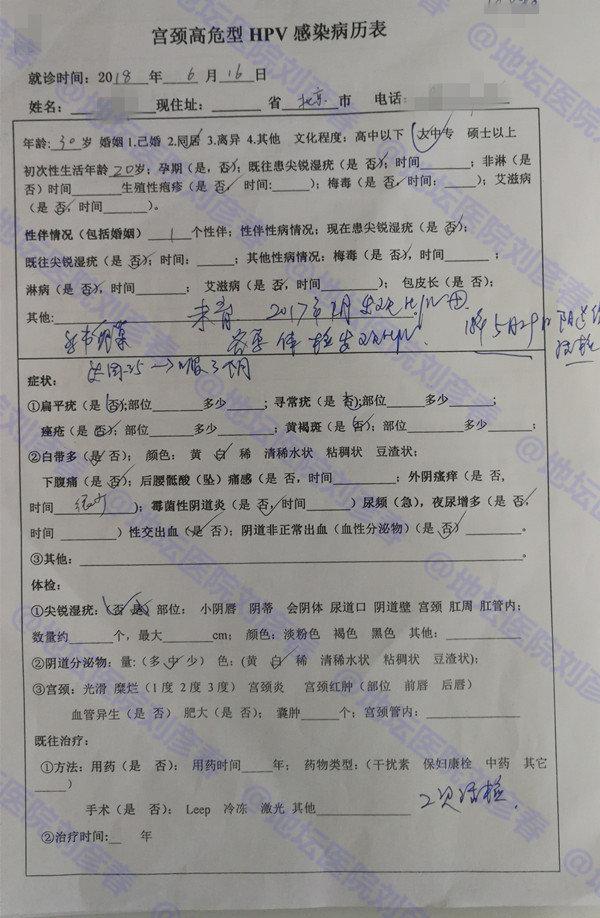 宫颈高危型 HPV 感染病历表
就诊时间：2018 年 6 月 16 日
姓名：现住址：省 北京 市 电话：
年龄：30 岁 婚姻 1.已婚 2.同居 3.离异 4.其他 文化程度：高中以下 大中专 硕士以上
初次性生活年龄 20 岁；孕期（是，否）；既往患尖锐湿疣（是 否），时间：；非淋（是
否）时间 生殖性疱疹（是 否，时间：）；梅毒（是 否，时间：）；艾滋病
（是 否，时间）。
性伴情况（包括婚姻） 1 个性伴；性伴性病情况：现在患尖锐湿疣（是 否）；
既往尖锐湿疣（是 否），时间：；其他性病情况：梅毒（是 否），时间；
淋病（是 否，时间； 艾滋病（是 否，时间）； 包皮长（是 否）；
其他：未育 2017年 月 发现HPV
体检发现HPV
症状：
①扁平疣（是 否）；部位 多少； 寻常疣（是 否）；部位 多少；
痤疮（是 否）；部位 多少； 黄褐斑（是 否）；部位 多少；
②白带多（是 否）； 颜色： 黄 白 稀 清稀水状 粘稠状 豆渣状；
下腹痛（是 否）；后腰骶酸（坠）痛感（是 否，时间）；外阴瘙痒（是 否，
时间）；霉菌性阴道炎（是 否，时间）尿频（急），夜尿增多（是 否，
时间）性交出血（是 否）；阴道非正常出血（血性分泌物）（是 否）。
③其他：。
体检：
①尖锐湿疣：（否 是）部位： 小阴唇 阴蒂 会阴体 尿道口 阴道壁 宫颈 肛周 肛管内；
数量约 个，最大 cm； 颜色：淡粉色 褐色 黑色 其他：
②阴道分泌物：量：（多 中 少） 色：（黄 白 稀 清稀水状 粘稠状 豆渣状）；
③宫颈：光滑 糜烂（1 度 2 度 3 度） 宫颈炎 宫颈红肿（部位 前唇 后唇）
血管异生（是 否） 肥大（是 否）； 囊肿 个；宫颈管内：
既往治疗：
①方法：用药（是 否）； 用药时间 年； 药物类型：（干扰素 保妇康栓 中药 其它
）
手术（是 否）； Leep 冷冻 激光 其他 2次活检.
②治疗时间： 年
@地坛医院刘彦春